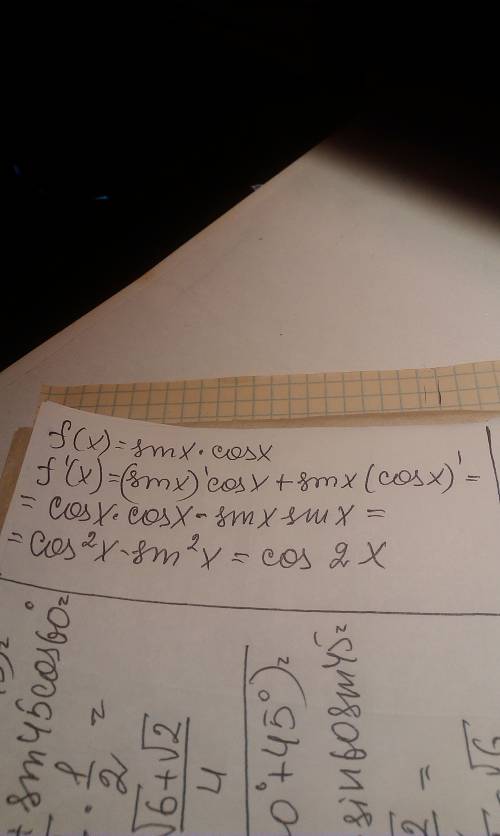 f(x)=sinx·cosx
f'(x)=(sinx)'cosx+sinx(cosx)'=
= cosx·cosx-sinx sinx =
= cos²x-sin²x = cos 2x
sin45cos60°=
· 1/2 =
√6+√2/4
0°+45°)=
sin60sin45=